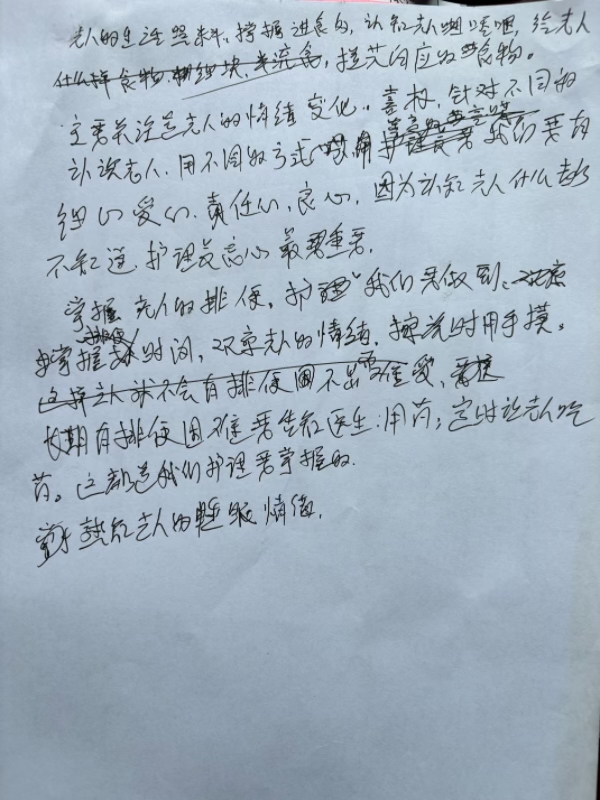 老人的生活照料,掌握进食的,认知老人咽 噎呢,给老人
什么样食物 半流食,提若的应的食物。
主要关注老人的情绪变化。喜 ,针对不同的
认识老人,用不同的方式 护理 我们要有
细心 爱心,责任心,良心,因为认知老人什么都
不知道,护理 良心最要重要。
掌握老人的排便,护理 我们要做到:观察
掌握 时间,观察老人的情绪,擦洗时用手摸。
这样老人就不会有排便困不出
长期有排便困难要告知医生:用药;定时 老人吃
药。这都是我们护理要掌握的.
熟知老人的睡眠情